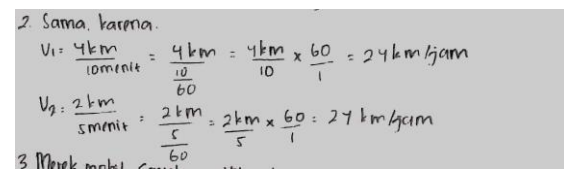 2. Sama, karena.
V1 = 4km / 10menit = 4km / 10/60 = 4km / 10 x 60 / 1 = 24km/jam
V2 = 2km / 5menit = 2km / 5/60 = 2km / 5 x 60 / 1 = 24km/jam
3 Merek mobil